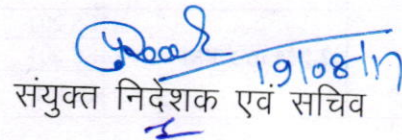 19/08/17
संयुक्त निदेशक एवं सचिव